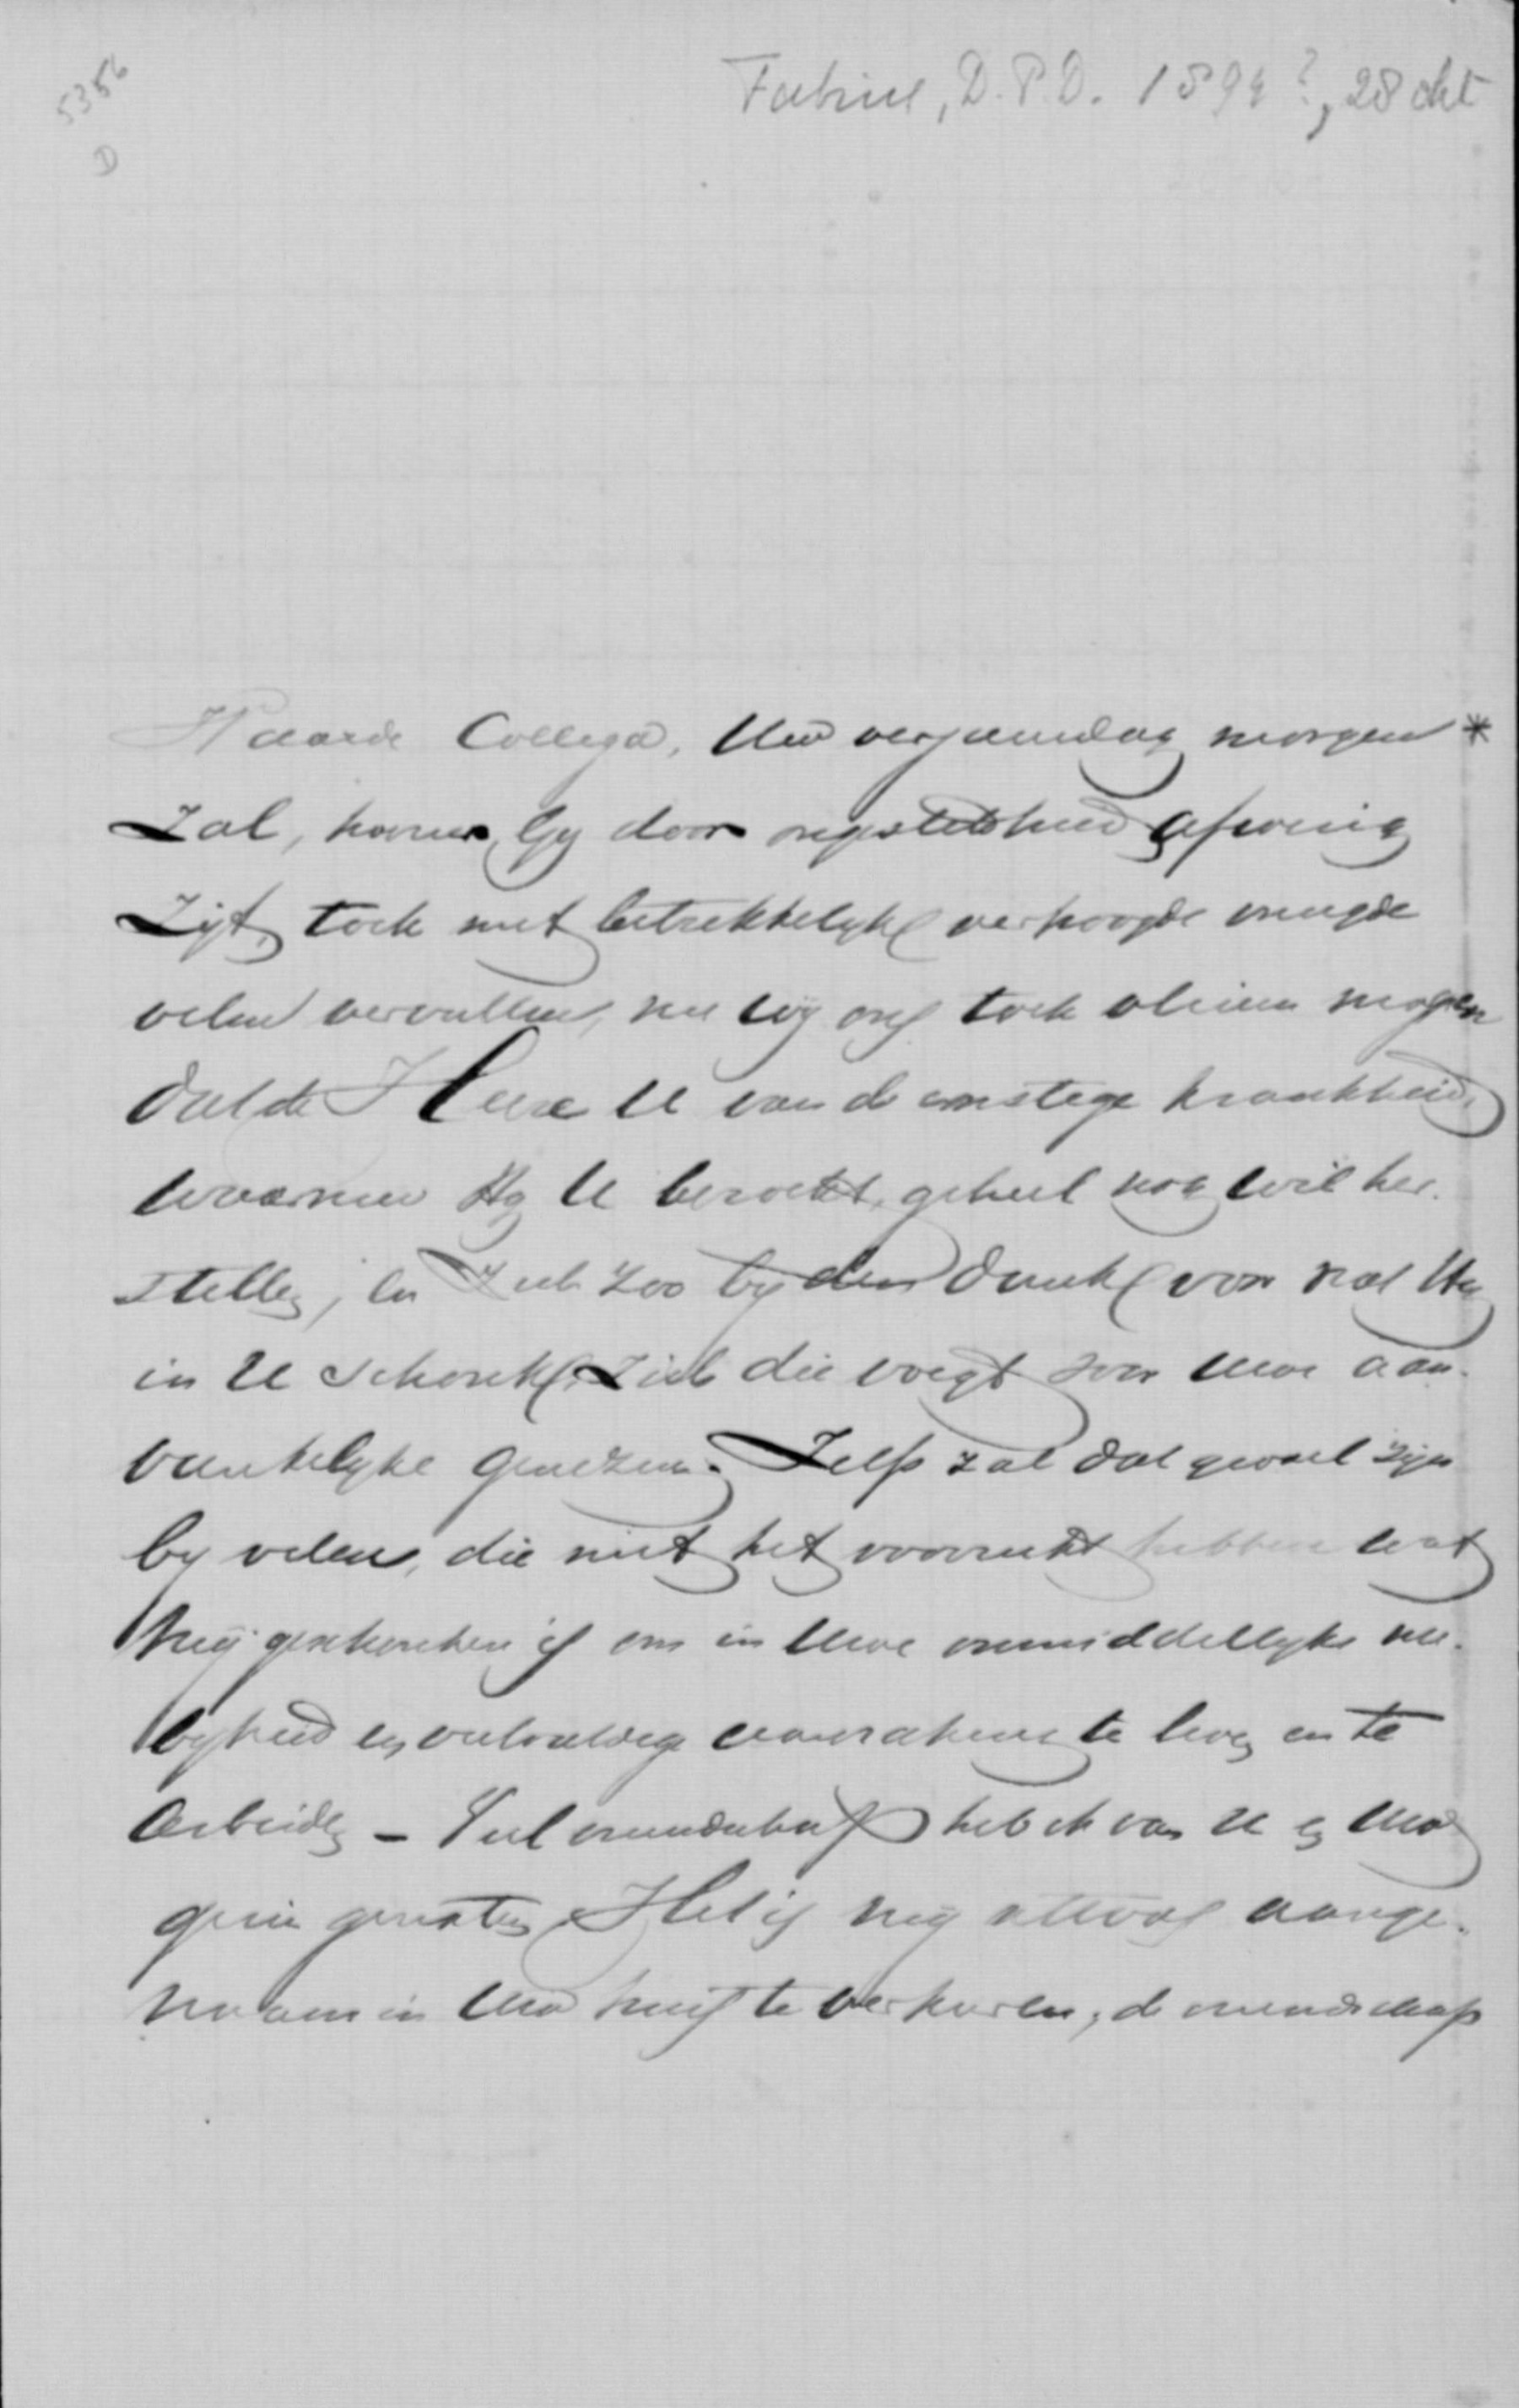 5356
D
Fabius, D.P.D. 1894?, 28 okt
Waarde Collega, Uw verjaardag morgen *
zal, hoewel Gy door ongesteldheid afwezig
zijt, toch met betrekkelyke verhoogde vreugde
velen vervullen, nu wij ons toch vleien mogen
dat de Heere U van de ernstige krankheid,
waarmee Hy U bezocht, geheel nog wil her-
stellen, en zich zoo by den dank voor wat Hy
in U schonk, zich die voegt voor Uwe aan-
vankelyke genezing. Zelfs zal dat gevoel zijn
by velen, die niet het voorrecht hebben wat
mij geschonken is om in Uwe onmiddellyke na-
byheid en veelvuldige aanraking te leven en te
arbeiden – Veel vriendschap heb ik van U en Uw
gezin genoten. Het is mij altoos aange-
naam in Uw huis te verkeeren, de vriendschap